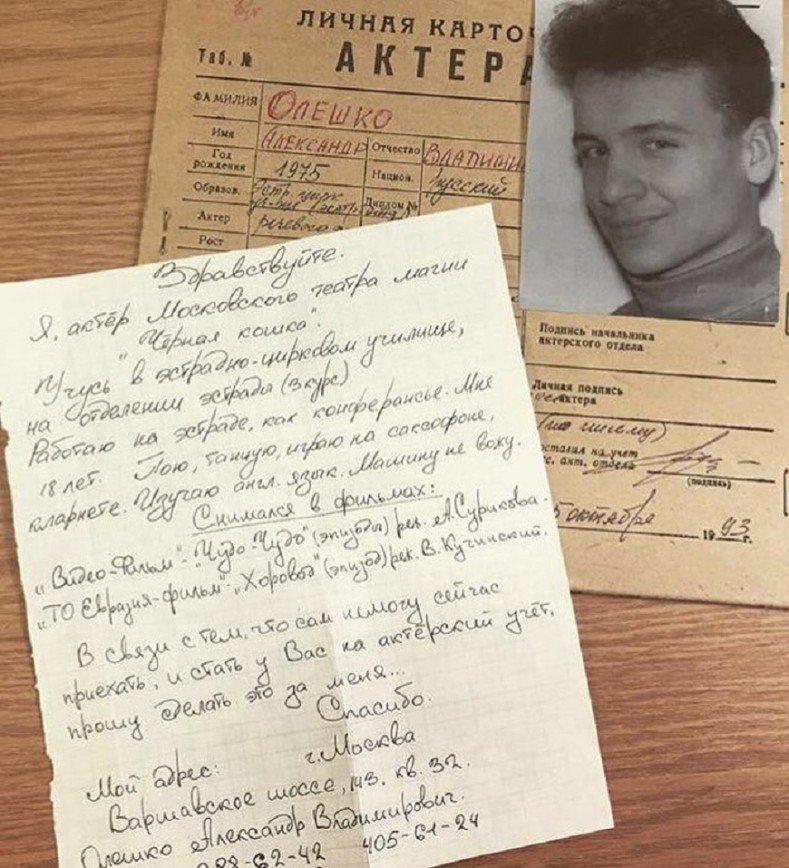 ЛИЧНАЯ КАРТО
АКТЕРА
Таб. №
ФАМИЛИЯ ОЛЕШКО
Имя АЛЕКСАНДР Отчество ВЛАДИМИ
Год рождения 1975 Национ. русский
Образов. Диплом №
Актер речевого
Рост
Подпись начальника
актерского отдела
Личная подпись
актера
(по письму)
оставил на учет
с. акт. отдела
(подпись)
5 октября 1993г.
Здравствуйте.
Я, актёр Московского театра магии
"Чёрная кошка".
Учусь в эстрадно-цирковом училище,
на отделении эстрады (3 курс)
Работаю на эстраде, как конферансье. Мне
18 лет. Пою, танцую, играю на саксофоне,
кларнете. Изучаю англ. язык. Машину не вожу.
Снимался в фильмах:
"Видео-Фильм"-"Чудо-Чудо" (эпизоды) реж. А. Сурикова.
"ТО Евразия-фильм"-"Хоровод" (эпизод) реж. В. Кучинский.
В связи с тем, что сам немогу сейчас
приехать, и стать у Вас на актёрский учёт,
прошу сделать это за меня...
Спасибо.
Мой адрес: г. Москва
Варшавское шоссе, 143. кв. 32.
Олешко Александр Владимирович.
62-42 405-61-24